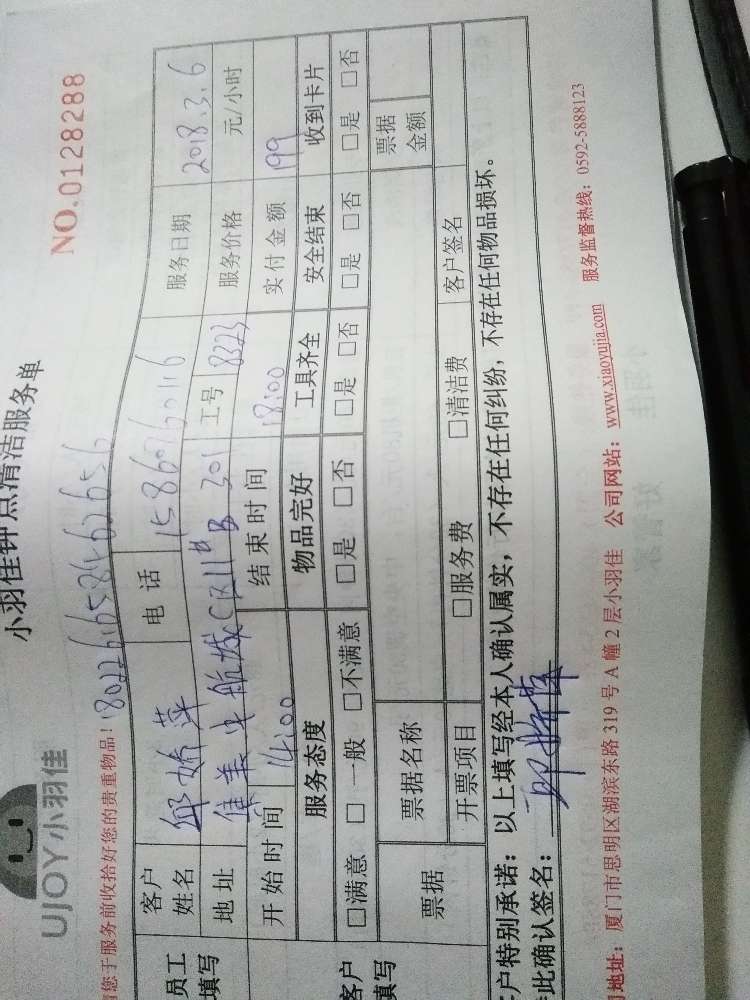 小羽佳钟点清洁服务单
UJOY小羽佳
NO.0128288
您于服务前收拾好您的贵重物品!
员工填写 客户姓名 邱娇萍 电话 服务日期 2018.3.6
地址 工号 8323 服务价格 元/小时
开始时间 14:00 结束时间 18:00 实付金额 199
客户填写 服务态度 物品完好 工具齐全 安全结束 收到卡片
□满意 □一般 □不满意 □是 □否 □是 □否 □是 □否 □是 □否
票据 票据名称 票据金额
开票项目 □服务费 □清洁费 客户签名
客户特别承诺：以上填写经本人确认属实，不存在任何纠纷，不存在任何物品损坏。
此确认签名：
地址：厦门市思明区湖滨东路 319 号 A 幢 2 层小羽佳 公司网站：www.xiaoyujia.com 服务监督热线：0592-5888123